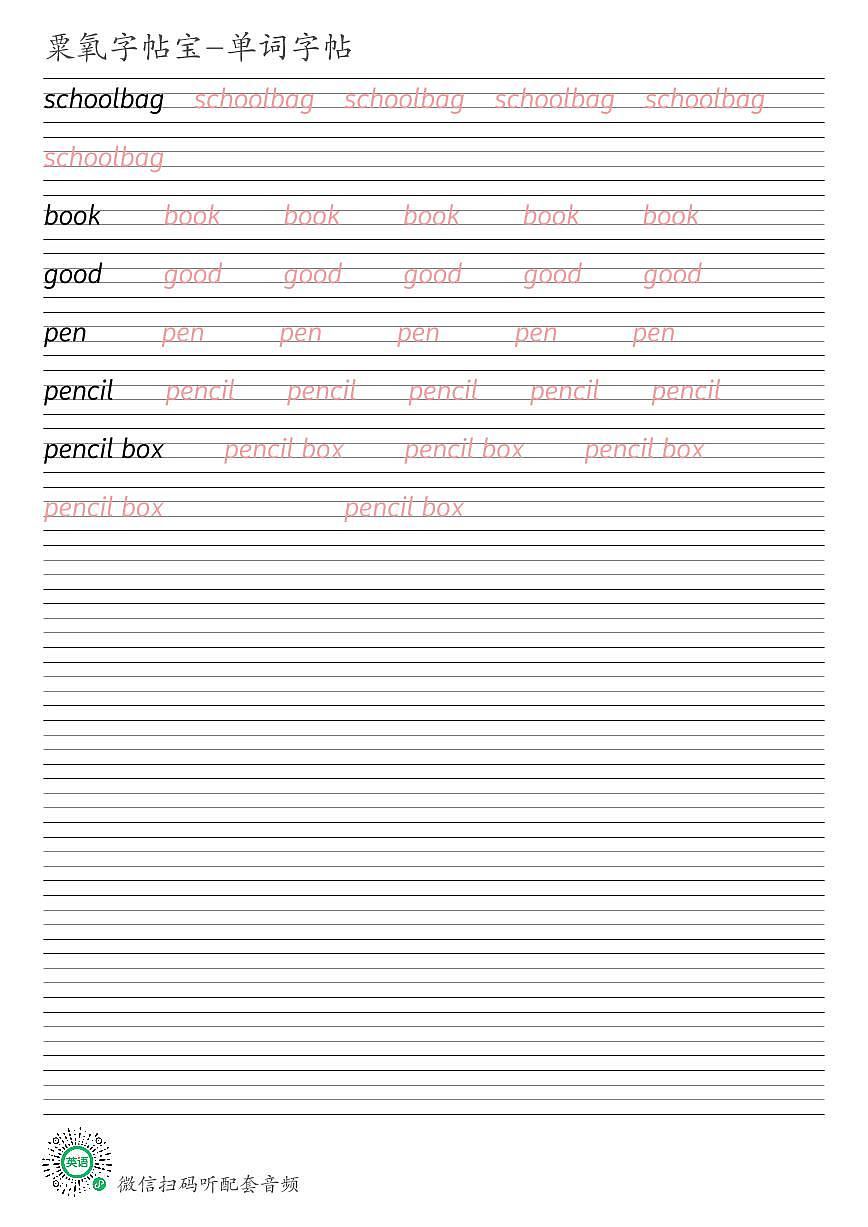 粟氧字帖宝–单词字帖
schoolbag schoolbag schoolbag schoolbag schoolbag
schoolbag
book book book book book book
good good good good good good
pen pen pen pen pen pen
pencil pencil pencil pencil pencil pencil
pencil box pencil box pencil box pencil box
pencil box pencil box
英语
微信扫码听配套音频